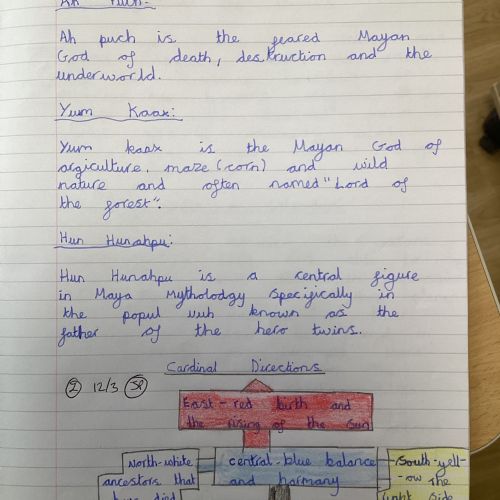 Ah Puch:
Ah puch is the feared Mayan
God of death, destruction and the
underworld.
Yum Kaax:
Yum kaax is the Mayan God of
argiculture, maze (corn) and wild
nature and often named "Lord of
the forest".
Hun Hunahpu:
Hun Hunahpu is a central figure
in Maya Mytholodgy specifically in
the popul vuh known as the
father of the hero twins.
Cardinal Directions
2 12/3 SP
East - red birth and
the rising of the sun
North - white
ancestors that
have died
central - blue balance
and harmany
South - yell-
-ow The
right side